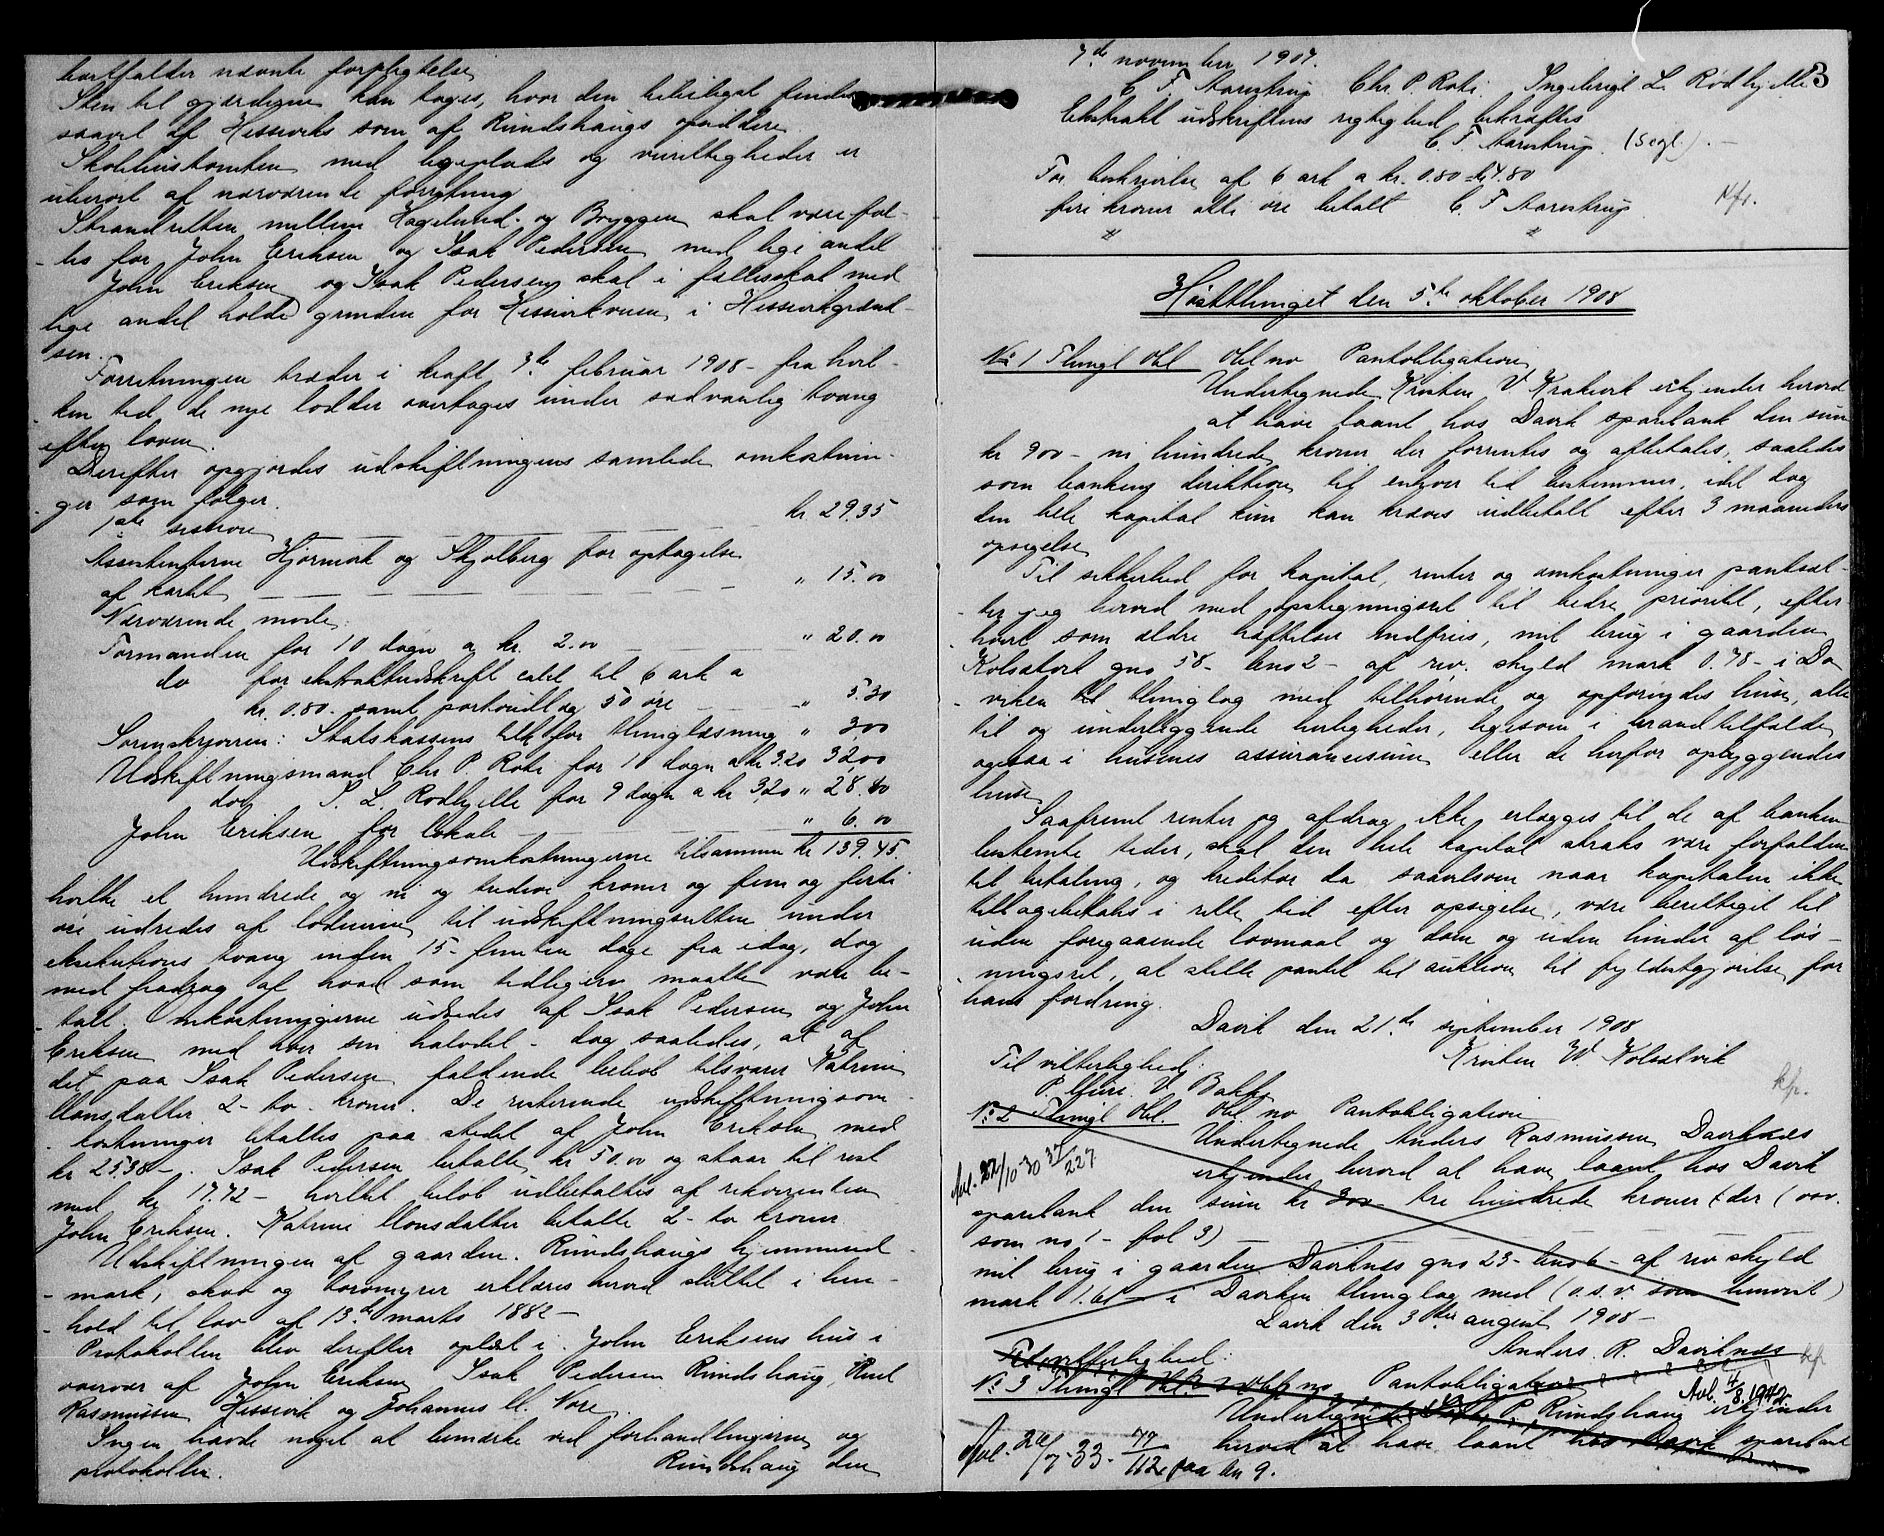 bortfalder nævnte forpligtelse
Sten til gjærdigen kan tages, hvor den beleiligst findes
saavel af Hessviks som af Rundshaugs opiddere.
Skolehustomten med legeplads og veirettigheder er
uberort af nærværende forretning
Strandretten mellem Hagelund og Bryggen skal være fæl-
les for John Eriksen og Isak Pedersen med lige andel
John Eriksen og Isak Pedersen skal i fællesskal med
lige andel holde grinden for Hessvikveien i Hessvikgrænd-
sen.
Forretningen træder i kraft 3de februar 1908 - fra hvil-
ken tid de nye lodder overtages under sedvanlig tvang
efter loven.
Derefter opgjordes udskiftningens samlede omkostnin-
ger som følger.
1ste session kr 29.35
Assistenterne Hjörmork og Skjolberg for optagelse
af kartet " 15.00
Nærværende møde:
Formanden for 10 dagn a kr. 2.00 " 20.00
do for ekstraktudskrift ialt til 6 ark a
kr. 0.80. samt portoudlæg 50 öre " 5.30
Sorenskriveren: Statskassens tilk for thinglæsning " 300
Udskiftningsmænd Chr P. Roti for 10 dagn a kr 3.20 3200
do I. L. Rødhjelle for 9 dagn a kr 3,20 " 28.80
John Eriksen for lokale " 6.00
Udskiftningsomkostningerne tilsammen kr 139.45.
hvilke et hundrede og ni og tredive kroner og fem og förti
öre udredes af lodeierne til udskiftningsretten under
eksekutions tvang inden 15 - femten dage fra idag, dog
med fradrag af hvad som tidligere maatte være be-
talt. Omkostningerne udredes af Isak Pedersen og John
Eriksen med hver sin halvdel - dog saaledes, at af
det paa Isak Pedersen faldende belöb tilsvarer Katrine
Monsdatter 2 - to - kroner. De resterende udskiftningsom-
kostninger betaltes paa stedet af John Eriksen med
kr 25.38 -. Isak Pedersen betalte kr 50.00 og skaar til rest
med kr 17.72 - hvilket belöb udbetaltes af rekvirenten
John Eriksen. Katrine Monsdatter betalte 2 - to kroner
Udskiftningen af gaarden Rundshaugs hjemmeind-
mark, skov og torvmyrer erklæres herved sluttet i hen-
hold til lov af 13de marts 1882 -
Protokollen blev derefter oplæst i John Eriksens hus i
overvær af John Eriksen Isak Pedersen Rundshaug,
Rasmussen Hessevik og Johannes M. Nore.
Ingen havde noget at bemærke ved forhandlingerne og
protokollen. Rundshaug den
7de november 1907.
C. F. Aarestrup. Chr. P. Roti. Ingebrigt L. Rødhjelle 3
Ekstrakt udskriftens rigtighed bekræftes
C. F. Aarestrup. (Segl.) -
For beskrivelse af 6 ark a kr. 0.80 = kr 4.80
fire kroner otti öre betalt C. F. Aarestrup
Höstthinget den 5te oktober 1908
No 1 Thingl Obl Obl no Pantobligation
Undertegnede Kristen V. erkjender herved
at have laant hos Davik sparebank den sum
kr 900 - ni hundrede kroner der forrentes og afbetales, saaledes
som bankens direktion til enhver tid bestemmer, idet dog
den hele kapital kun kan kræves udbetalt efter 3 maaneders
opsigelse
Til sikkerhed for kapital, renter og omkostninger pantsæt-
ter jeg herved med opstegningsret til bedre prioritet, efter
hvert som ældre hæftelser indfries, mit brug i gaarden
Kolsetvik gno 58 - bno 2 - af rev. skyld mark 0.78 - i Da-
viken til thinglag med tilhörende og opförendes huse, alle
til og underliggende herligheder, ligesom i brandtilfælde
ogsaa i husenes assurancesum eller de herfor opbyggendes
huse
Saafremt renter og afdrag ikke erlægges til de af banken
bestemte tider, skal den hele kapital straks være forfalden
til betaling, og kreditor da saavelsom naar kapitalen ikke
tilbagebetales i rette tid efter opsigelse, være berettiget til
uden foregaaende lovmaal og dom og uden hinder af lös-
ningsret, at stille pantet til auktion til fyldestgjörelse for
hans fordring.
Davik den 21de september 1908
Til vitterlighed: Kristen W. Kolsetvik
P. V. Bakke kfr.
No 2 Thingl Obl. Obl no Pantobligation
Undertegnede Anders Rasmussen Daviknes
erkjender herved at have laant hos Davik
Avl. 22/10-30 37/227
sparebank den sum kr 300 tre hundrede kroner (der (o.s.v.
som no 1 - fol 3)
mit brug i gaarden Daviknes gno 23 - bno 6 - af rev skyld
mark 1.61 - i Daviken thinglag med (o.s.v. som benevnt)
Davik den 3die august 1908 -
Til vitterlighed: Anders R. Daviknes
No 3 Thingl Obl. Obl no Pantobligation Avl. 4/8.1942
Undertegnede P. Rundshaug erkjender
herved at have laant hos Davik sparebank
Avl. 26/7-33. 77/112 paa bn 9.